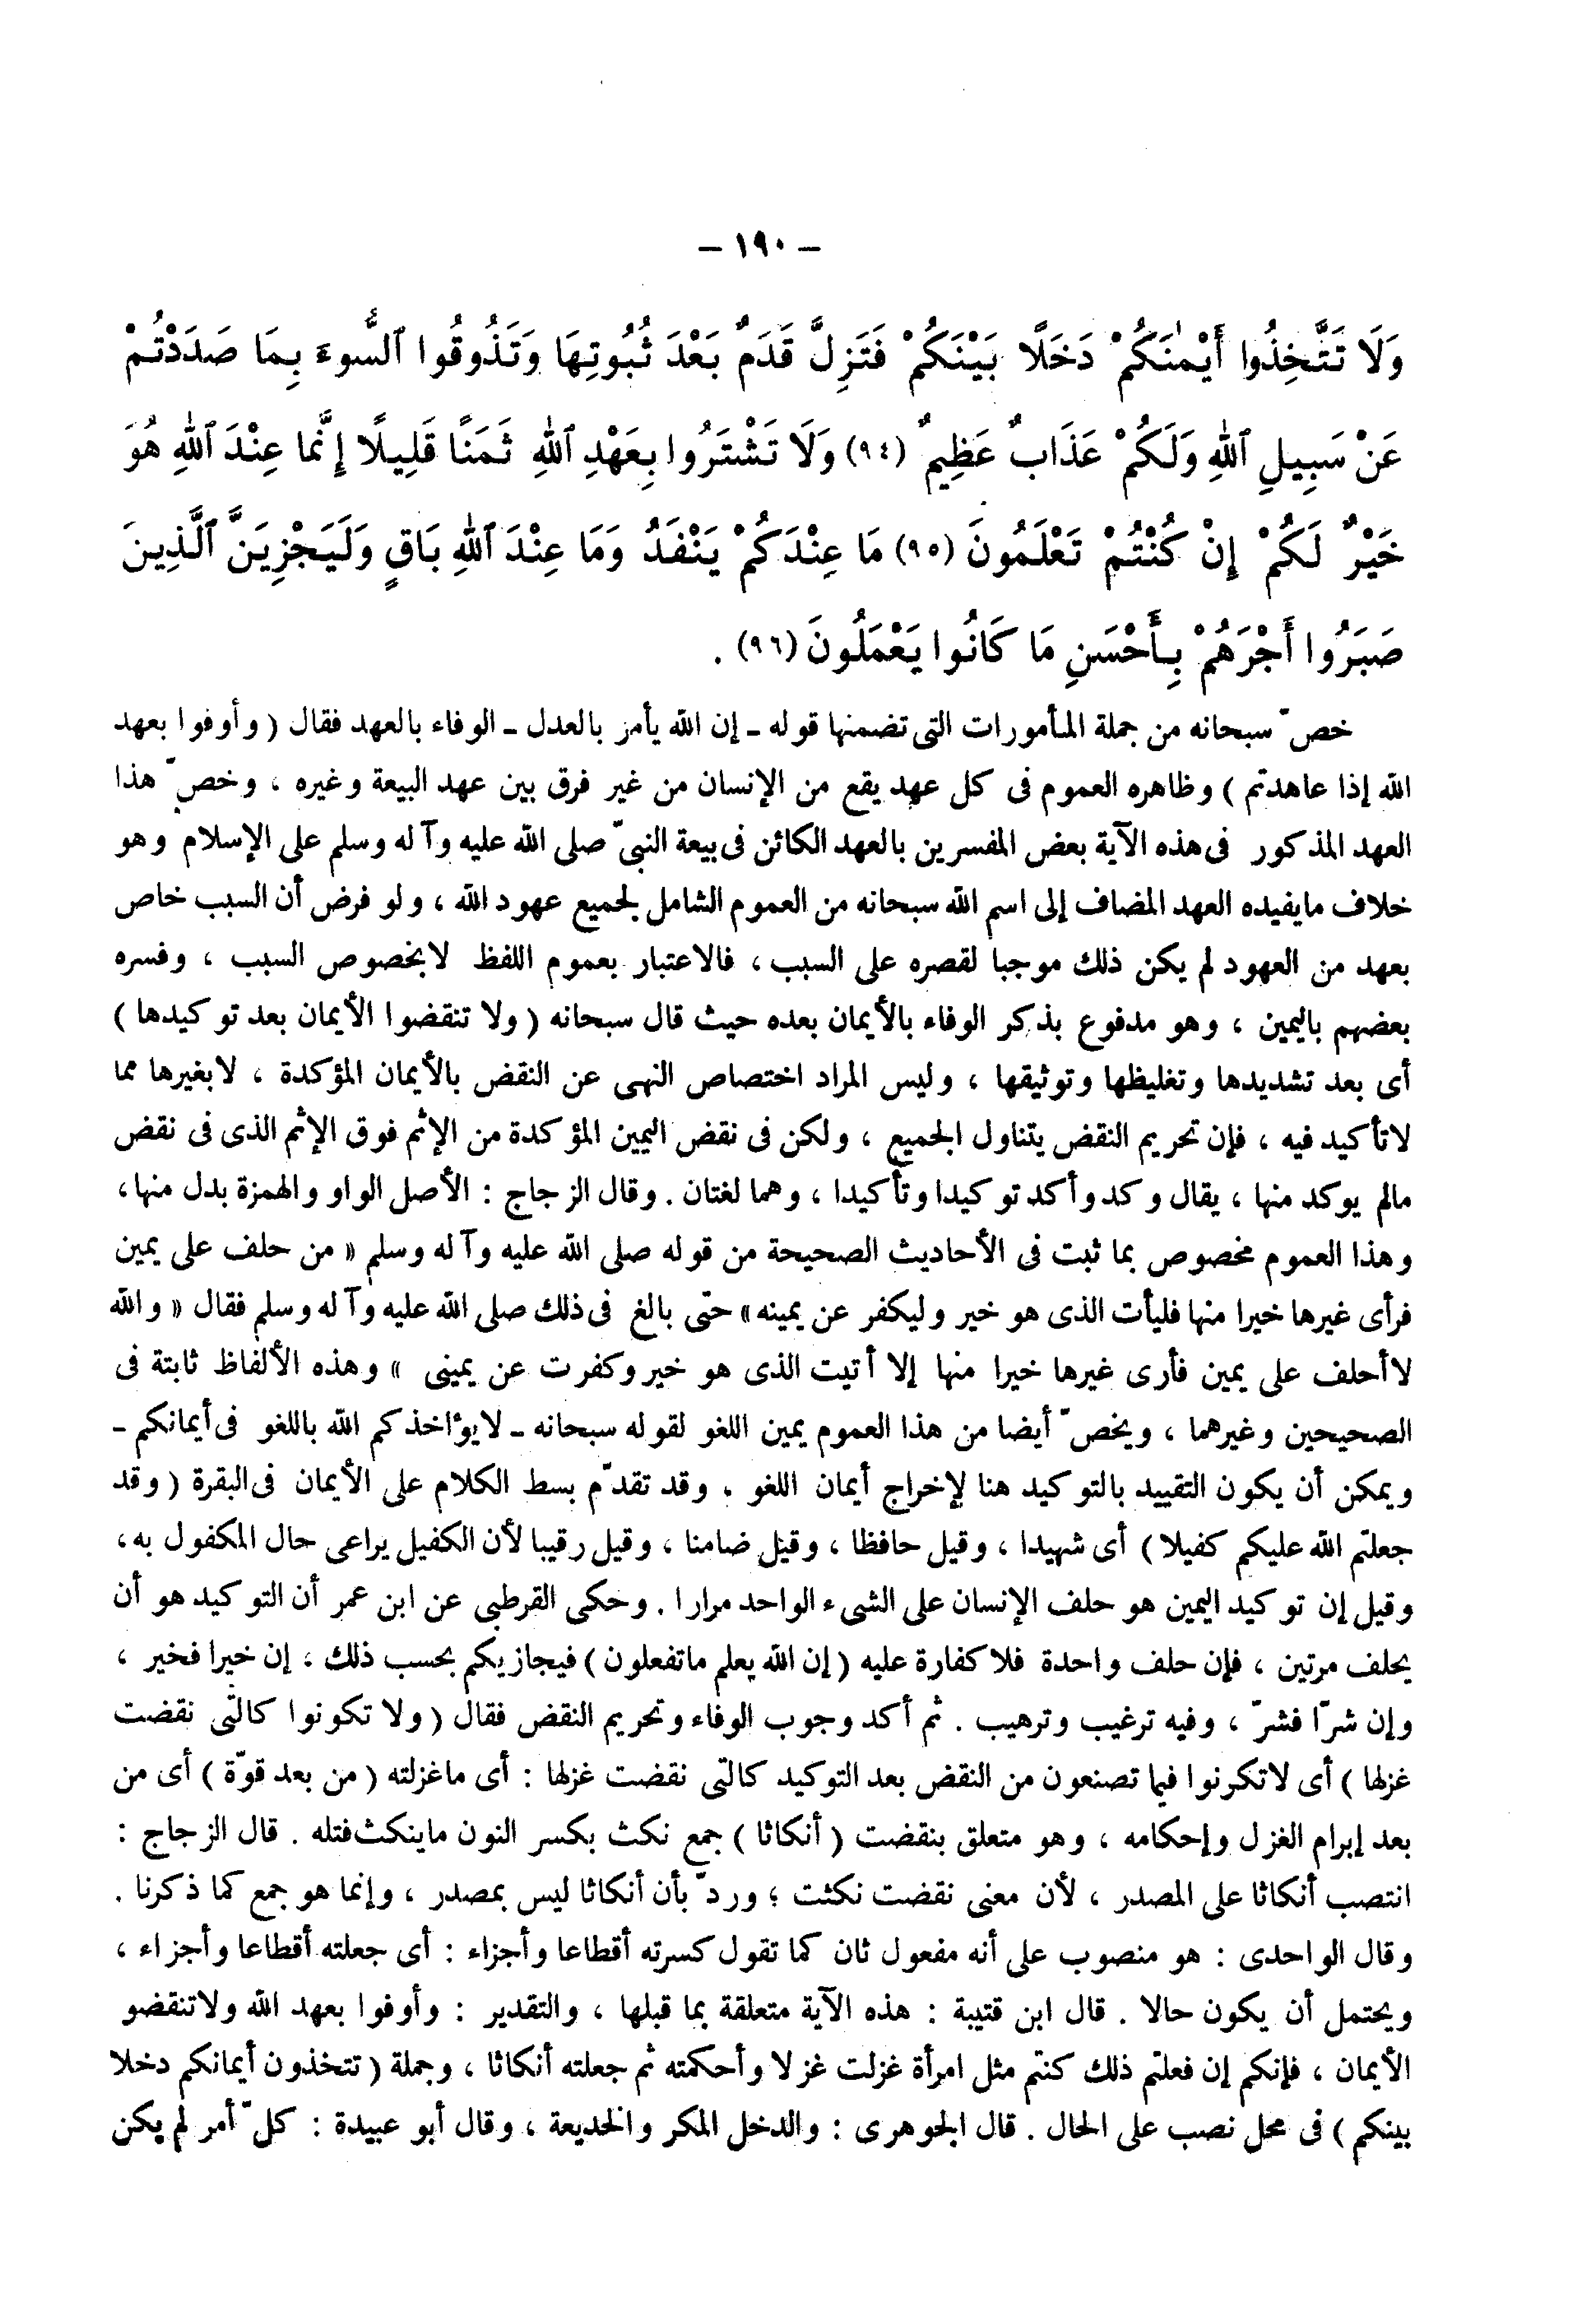 – ١٩٠ –
وَلَا تَتَّخِذُوا أَيْمَٰنَكُمْ دَخَلًا بَيْنَكُمْ فَتَزِلَّ قَدَمٌ بَعْدَ ثُبُوتِهَا وَتَذُوقُوا ٱلسُّوءَ بِمَا صَدَدْتُمْ
عَنْ سَبِيلِ ٱللهِ وَلَكُمْ عَذَابٌ عَظِيمٌ (٩٤) وَلَا تَشْتَرُوا بِعَهْدِ ٱللهِ ثَمَنًا قَلِيلًا إِنَّما عِنْدَ ٱللهِ هُوَ
خَيْرٌ لَكُمْ إِنْ كُنْتُمْ تَعْلَمُونَ (٩٥) مَا عِنْدَكُمْ يَنْفَدُ وَمَا عِنْدَ ٱللهِ بَاقٍ وَلَيَجْزِيَنَّ ٱلَّذِينَ
صَبَرُوا أَجْرَهُمْ بِأَحْسَنِ مَا كَانُوا يَعْمَلُونَ (٩٦) .
خصّ سبحانه من جملة المأمورات التى تضمنها قوله ـ إن الله يأمر بالعدل ـ الوفاء بالعهد فقال ( وأوفوا بعهد
الله إذا عاهدتم ) وظاهره العموم فى كل عهد يقع من الإنسان من غير فرق بين عهد البيعة وغيره ، وخصّ هذا
العهد المذكور فى هذه الآية بعض المفسرين بالعهد الكائن فى بيعة النبىّ صلى الله عليه وآ له وسلم على الإسلام وهو
خلاف مايفيده العهد المضاف إلى اسم الله سبحانه من العموم الشامل لجميع عهود الله ، ولو فرض أن السبب خاص
بعهد من العهود لم يكن ذلك موجبا لقصره على السبب ، فالاعتبار بعموم اللفظ لابخصوص السبب ، وفسره
بعضهم باليمين ، وهو مدفوع بذكر الوفاء بالأيمان بعده حيث قال سبحانه ( ولا تنقضوا الأيمان بعد توكيدها )
أى بعد تشديدها وتغليظها وتوثيقها ، وليس المراد اختصاص النهى عن النقض بالأيمان المؤكدة ، لابغيرها مما
لاتأكيد فيه ، فإن تحريم النقض يتناول الجميع ، ولكن فى نقض اليمين المؤكدة من الإثم فوق الإثم الذى فى نقض
مالم يوكد منها ، يقال وكد وأكد توكيدا وتأكيدا ، وهما لغتان . وقال الزجاج : الأصل الواو والهمزة بدل منها ،
وهذا العموم مخصوص بما ثبت فى الأحاديث الصحيحة من قوله صلى الله عليه وآ له وسلم « من حلف على يمين
فرأى غيرها خيرا منها فليأت الذى هو خير وليكفر عن يمينه » حتى بالغ فى ذلك صلى الله عليه وآ له وسلم فقال « والله
لاأحلف على يمين فأرى غيرها خيرا منها إلا أتيت الذى هو خير وكفرت عن يمينى » وهذه الألفاظ ثابتة فى
الصحيحين وغيرهما ، ويخصّ أيضا من هذا العموم يمين اللغو لقوله سبحانه ـ لايؤاخذكم الله باللغو فى أيمانكم ـ
ويمكن أن يكون التقييد بالتوكيد هنا لإخراج أيمان اللغو . وقد تقدّم بسط الكلام على الأيمان فى البقرة ( وقد
جعلتم الله عليكم كفيلا ) أى شهيدا ، وقيل حافظا ، وقيل ضامنا ، وقيل رقيبا لأن الكفيل يراعى حال المكفول به ،
وقيل إن توكيد اليمين هو حلف الإنسان على الشىء الواحد مرارا . وحكى القرطبى عن ابن عمر أن التوكيد هو أن
يحلف مرتين ، فإن حلف واحدة فلا كفارة عليه ( إن الله يعلم ماتفعلون ) فيجازيكم بحسب ذلك ، إن خيرا فخير ،
وإن شرّا فشرّ ، وفيه ترغيب وترهيب . ثم أكد وجوب الوفاء وتحريم النقض فقال ( ولا تكونوا كالتى نقضت
غزلها ) أى لاتكونوا فيما تصنعون من النقض بعد التوكيد كالتى نقضت غزلها : أى ماغزلته ( من بعد قوّة ) أى من
بعد إبرام الغزل وإحكامه ، وهو متعلق بنقضت ( أنكاثا ) جمع نكث بكسر النون ماينكث فتله . قال الزجاج :
انتصب أنكاثا على المصدر ، لأن معنى نقضت نكثت ؛ وردّ بأن أنكاثا ليس بمصدر ، وإنما هو جمع كما ذكرنا .
وقال الواحدى : هو منصوب على أنه مفعول ثان كما تقول كسرته أقطاعا وأجزاء : أى جعلته أقطاعا وأجزاء ،
ويحتمل أن يكون حالا . قال ابن قتيبة : هذه الآية متعلقة بما قبلها ، والتقدير : وأوفوا بعهد الله ولاتنقضو
الأيمان ، فإنكم إن فعلتم ذلك كنتم مثل امرأة غزلت غزلا وأحكمته ثم جعلته أنكاثا ، وجملة ( تتخذون أيمانكم دخلا
بينكم ) فى محل نصب على الحال . قال الجوهرى : والدخل المكر والخديعة ، وقال أبو عبيدة : كلّ أمر لم يكن